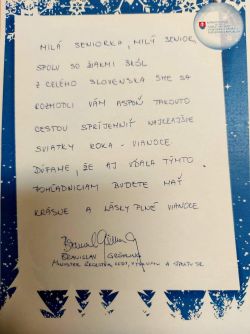 MILÁ SENIORKA, MILÝ SENIOR,
SPOLU SO ŽIAKMI ŠKÔL
Z CELÉHO SLOVENSKA SME SA
ROZHODLI VÁM ASPOŇ TAKOUTO
CESTOU SPRÍJEMNIŤ NAJKRAJŠIE
SVIATKY ROKA - VIANOCE.
DÚFAME, ŽE AJ VĎAKA TÝMTO
POHĽADNICIAM BUDETE MAŤ
KRÁSNE A LÁSKYPLNÉ VIANOCE.
BRANISLAV GRÖHLING
MINISTER ŠKOLSTVA, VEDY, VÝSKUMU A ŠPORTU SR